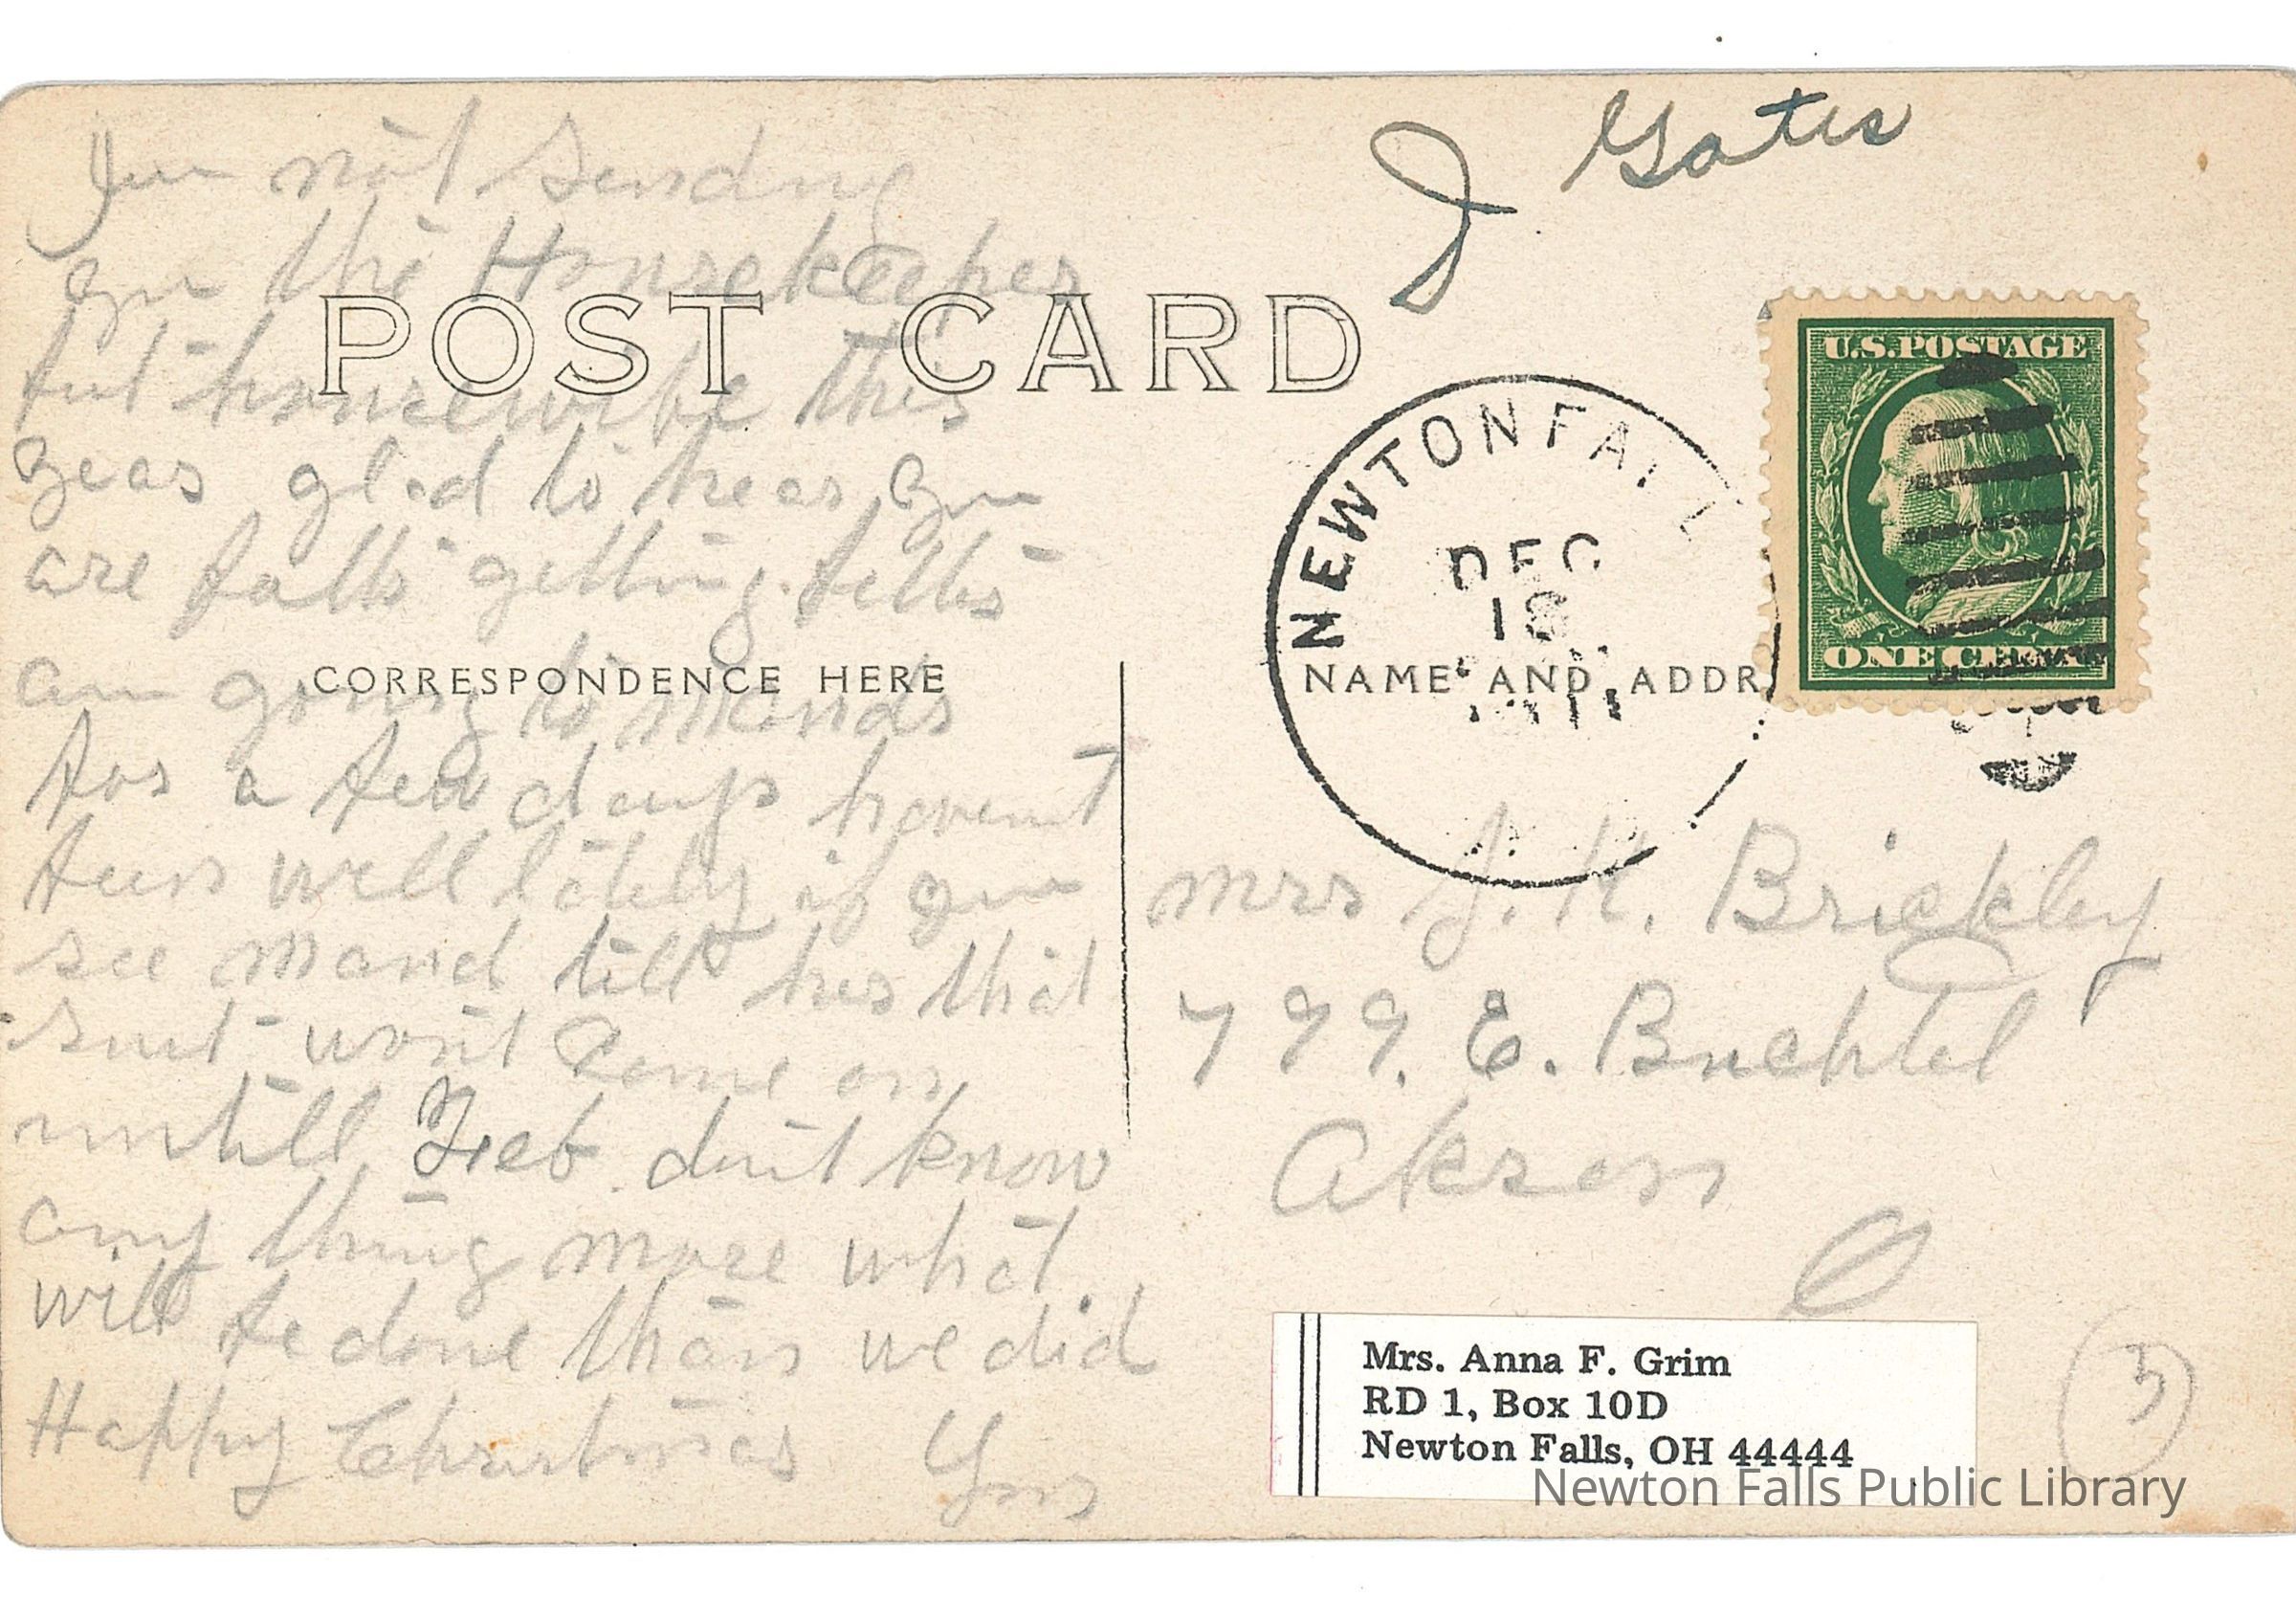 Im not sending
you the Housekeeper
but housewife this
year glad to hear you
are both getting better
am going to mands
for a few days havent
been well lately if you
see mand tell her that
suit wont come on
untill Feb. dont know
any thing more what
will be done than we did
Happy Christmas Yours
J Gates
POST CARD
CORRESPONDENCE HERE
NAME AND ADDR
U.S. POSTAGE
ONE CENT
NEWTON FALL
DEC
18
1911
Mrs J. H. Brickley
799. E. Buchtel
Akron
O
Mrs. Anna F. Grim
RD 1, Box 10D
Newton Falls, OH 44444
5
Newton Falls Public Library